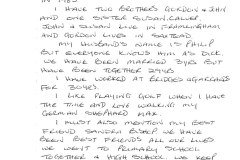 I HAVE TWO BROTHERS GORDON & JOHN
AND ONE SISTER SUSAN CALLED
JOHN & SUSAN LIVE IN FRAMINGHAM
AND GORDON LIVES IN
MY HUSBANDS NAME IS PHILIP
BUT EVERYONE KNOWS HIM AS DICK
WE HAVE BEEN MARRIED 24YRS BUT
HAVE BEEN TOGETHER 29YRS
I HAVE WORKED AT
FOR 30YRS.
I LIKE PLAYING GOLF WHEN I HAVE
THE TIME AND LOVE WALKING MY
GERMAN SHEPHARD MAX.
I MUST ALSO MENTION MY BEST
FRIEND SANDRA BISHOP WE HAVE
BEEN BEST FRIENDS ALL OUR LIVES
WE WENT TO PRIMARY SCHOOL
TOGETHER & HIGH SCHOOL WE KEEP